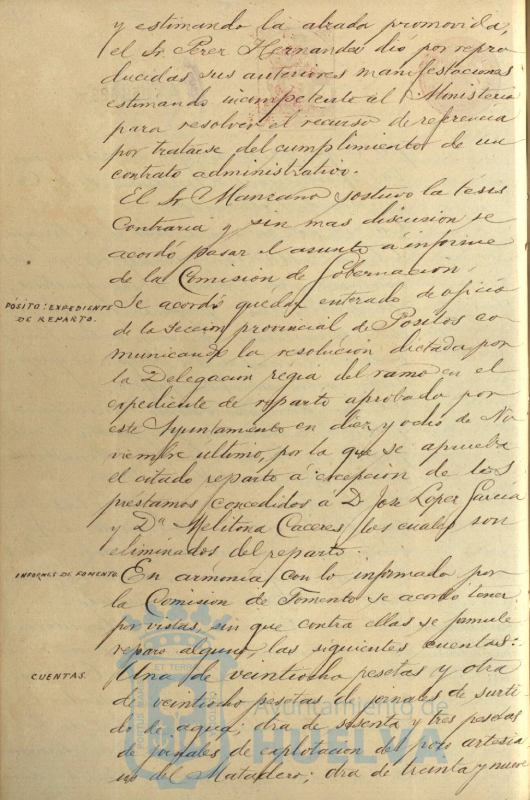 y estimando la alzada promovida,
el Sr Perez Hernandez dio por repro
ducidas sus anteriores manifestaciones
estimando incompetente al Ministerio
para resolver el recurso de referencia
por tratarse del cumplimiento de un
contrato administrativo.
El Sr Manzano sostuvo la tesis
contraria y sin mas discusion se
acordó pasar el asunto á informe
de la Comisión de Gobernación.
PÓSITO: EXPEDIENTE
DE REPARTO.
Se acordó quedar enterado de oficio
de la Sección provincial de Positos co
municando la resolución dictada por
la Delegacion regia del ramo en el
expediente de reparto aprobado por
este Ayuntamiento en diez y ocho de No
viembre ultimo, por la que se aprueba
el citado reparto á excepcion de los
prestamos concedidos á D. Jose Lopez Garcia
y Dª Melitona Caceres los cuales son
eliminados del reparto.
INFORMES DE FOMENTO.
En armonia con lo informado por
la Comision de Fomento se acordo tener
por vistas, sin que contra ellas se formule
reparo alguno las siguientes cuentas:
CUENTAS.
Una de veintiocho pesetas y otra
de veintiocho pesetas de jornales de surti
do de agua; otra de sesenta y tres pesetas
de jornales de explotacion del pozo artesia
no del Matadero; otra de treinta y nueve
Ayuntamiento de
HUELVA